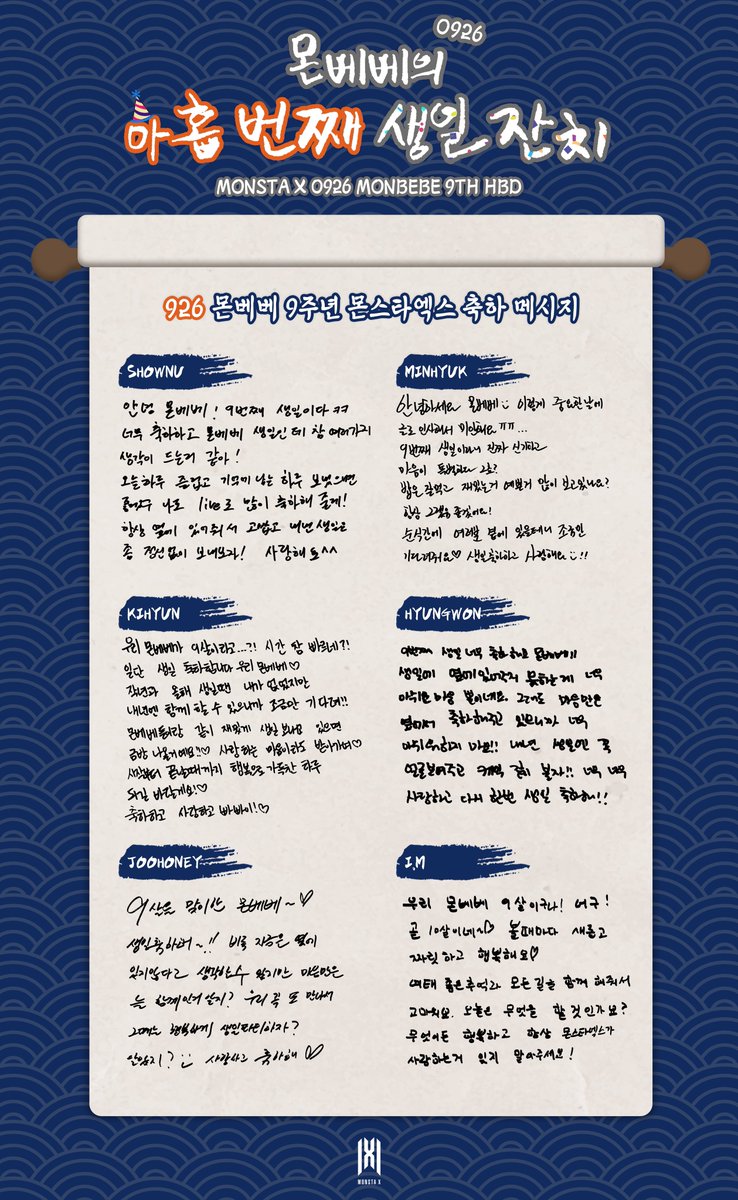 0926
몬베베의
아홉 번째 생일 잔치
MONSTA X 0926 MONBEBE 9TH HBD
926 몬베베 9주년 몬스타엑스 축하 메시지
SHOWNU
안녕 몬베베! 9번째 생일이다 ㅋㅋ
너무 축하하고 몬베베 생일인데 참 여러가지
생각이 드는거 같아!
오늘하루 즐겁고 기억에 남는 하루 보냈으면
좋겠다 나도 live로 많이 축하해 줄게!
항상 옆에 있어줘서 고맙고 내년 생일은
좀 정신없이 보내보자! 사랑해요^^
MINHYUK
안녕하세요 몬베베 이렇게 중요한날에
글로 인사해서 미안해요 ㅠㅠ...
9번째 생일이라니 진짜 신기하고
마음이 그죠?
밥은 잘먹고 재밌는거 예쁜거 많이 보고있나요?
항상 그랬음 좋겠어요!
순식간에 여러분 곁에 있을테니 조금만
기다려줘요♡ 생일축하하고 사랑해요!!
KIHYUN
우리 몬베베가 9살이라고...?! 시간 참 빠르네?!
일단 생일 축하합니다 우리 몬베베♡
작년과 올해 생일땐 내가 없었지만
내년엔 함께 할 수 있으니까 조금만 기다려!!
몬베베들이랑 같이 재밌게 생일 보내고 있으면
금방 나올거예요!!♡ 사랑하는 마음이라도 받아가며♡
시작부터 끝날때까지 행복으로 가득찬 하루
되길 바랄게요!♡
축하하고 사랑하고 빠빠이!♡
HYUNGWON
9번째 생일 너무 축하해요 몬베베!!
생일에 옆에 있어주지 못하는게 너무
아쉬운 마음 뿐이네요. 그래도 마음만은
옆에서 축하해주고 있으니까 너무
아쉬워하지 마요!! 내년 생일엔 꼭
얼굴보여주고 케익 같이 불자!! 너무 너무
사랑하고 다시 한번 생일 축하해!!
JOOHONEY
9살을 맞이한 몬베베~♡
생일축하해~!! 비록 지금은 옆에
있지않다고 생각할수 있지만 마음만은
늘 함께인거 알지? 우리 꼭 또 만나서
그때는 행복하게 생일파티하자?
알았지? 사랑하고 축하해♡
I.M
우리 몬베베 9살이구나! 어구!
곧 10살이네~♡ 볼때마다 새롭고
짜릿하고 행복해요♡
여태 좋은추억과 모든길을 함께 해줘서
고마워요. 오늘은 무엇을 할 것인가요?
무엇이든 행복하고 항상 몬스타엑스가
사랑하는거 잊지 말아주세요!
MONSTA X